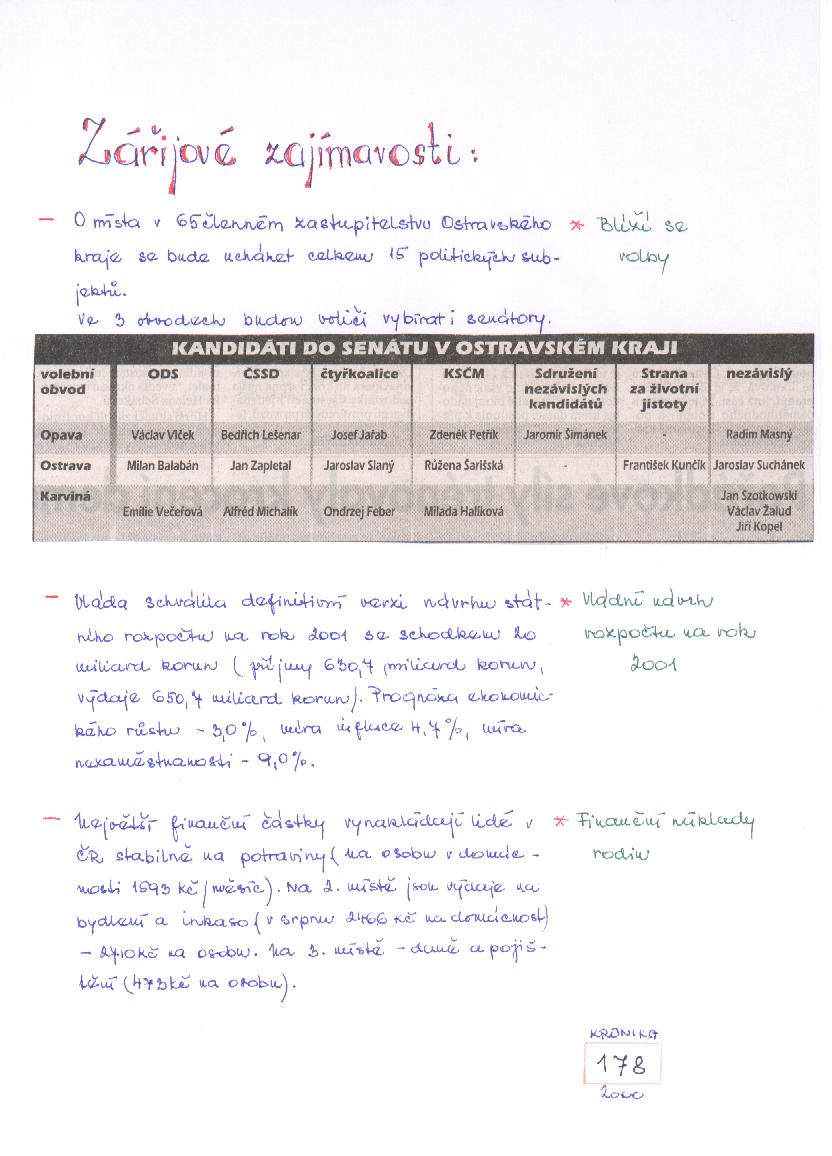 Zářijové zajímavosti:
— O místa v 65členném zastupitelstvu Ostravského * Blíží se
kraje se bude ucházet celkem 15 politických sub- volby
jektů.
Ve 3 obvodech budou voliči vybírat i senátory.
KANDIDÁTI DO SENÁTU V OSTRAVSKÉM KRAJI
volební obvod ODS ČSSD čtyřkoalice KSČM Sdružení nezávislých kandidátů Strana za životní jistoty nezávislý
Opava Václav Vlček Bedřich Lešenar Josef Jařab Zdeněk Petřík Jaromír Šimánek - Radim Masný
Ostrava Milan Balabán Jan Zapletal Jaroslav Slaný Růžena Šarišská - František Kunčík Jaroslav Suchánek
Karviná Emílie Večeřová Alfréd Michalík Ondrzej Feber Milada Halíková Jan Szotkowski
Václav Žalud
Jiří Kopel
— Vláda schválila definitivní verzi návrhu stát- * Vládní návrh
ního rozpočtu na rok 2001 se schodkem 20 rozpočtu na rok
miliard korun (příjmy 630,7 miliard korun, 2001
výdaje 650,7 miliard korun). Prognóza ekonomic-
kého růstu - 3,0%, míra inflace 4,7%, míra
nezaměstnanosti - 9,0%.
— Největší finanční částky vynakládají lidé v * Finanční náklady
ČR stabilně na potraviny (na osobu v domác- rodin
nosti 1593 Kč/měsíc). Na 2. místě jsou výdaje na
bydlení a inkaso (v srpnu 2466 Kč na domácnost)
- 2710kč na osobu. Na 3. místě - daně a pojiš-
tění (473kč na osobu).
KRONIKA
178
2000